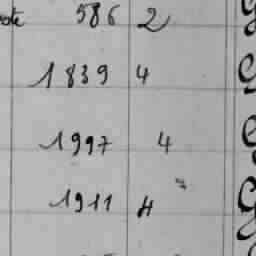 586 2
1839 4
1997 4
1911 4